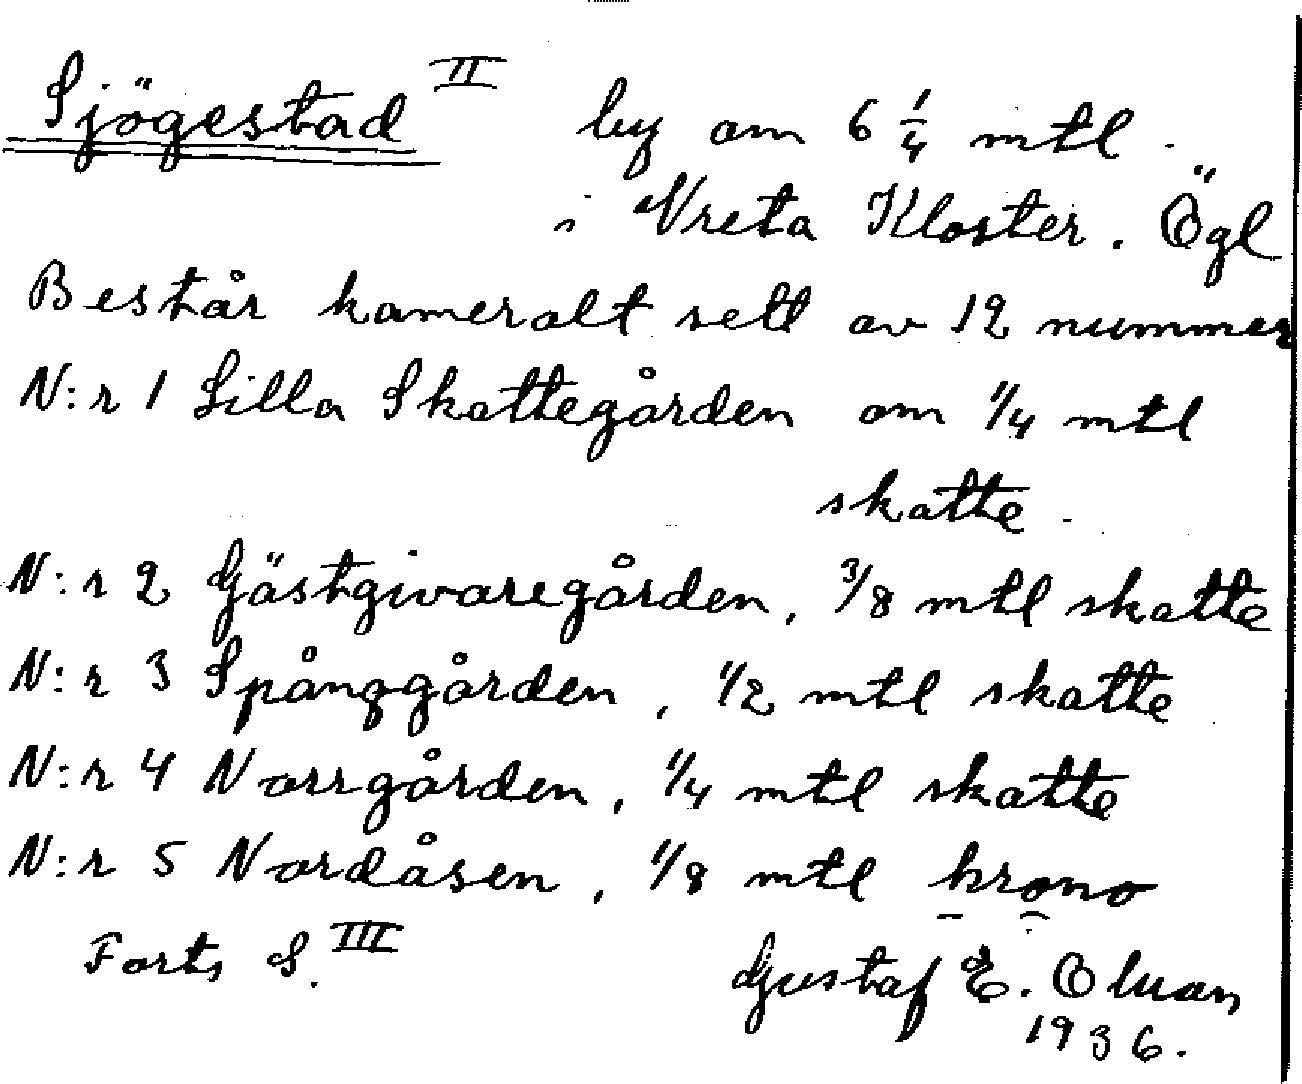 Sjögestad II by om 6 1/4 mtl.
i Vreta Kloster. Ögl
Består kameralt sett av 12 nummer
N:r 1 Lilla Skattegården om 1/4 mtl
skatte.
N:r 2 Gästgivaregården, 3/8 mtl skatte
N:r 3 Spånggården, 1/2 mtl skatte
N:r 4 Norrgården, 1/4 mtl skatte
N:r 5 Nordåsen, 1/8 mtl krono
Forts S. III
Gustaf E.
1936.